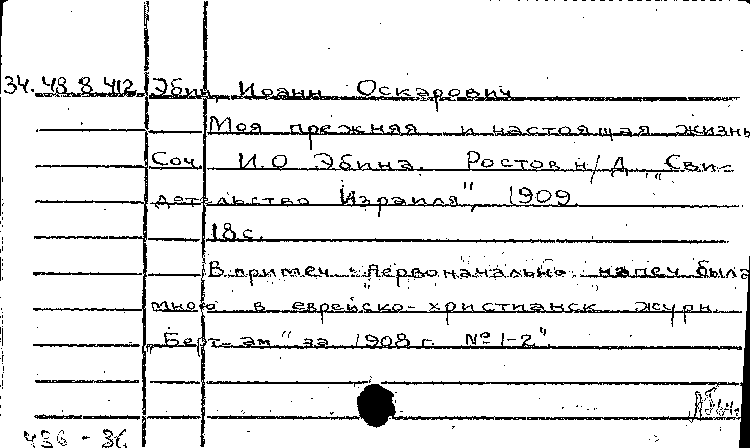 34.48.8.412 Эбин, Иоанн Оскарович
Моя прежняя и настоящая жизнь
Соч. И.О Эбина. Ростов н/Д, „Сви-
детельство Израиля", 1909.
18с.
В примеч.: „Первоначально напеч. была
мною в еврейско-христианск журн.
„Берт-эм" за 1908 г. № 1-2".
436 - 36